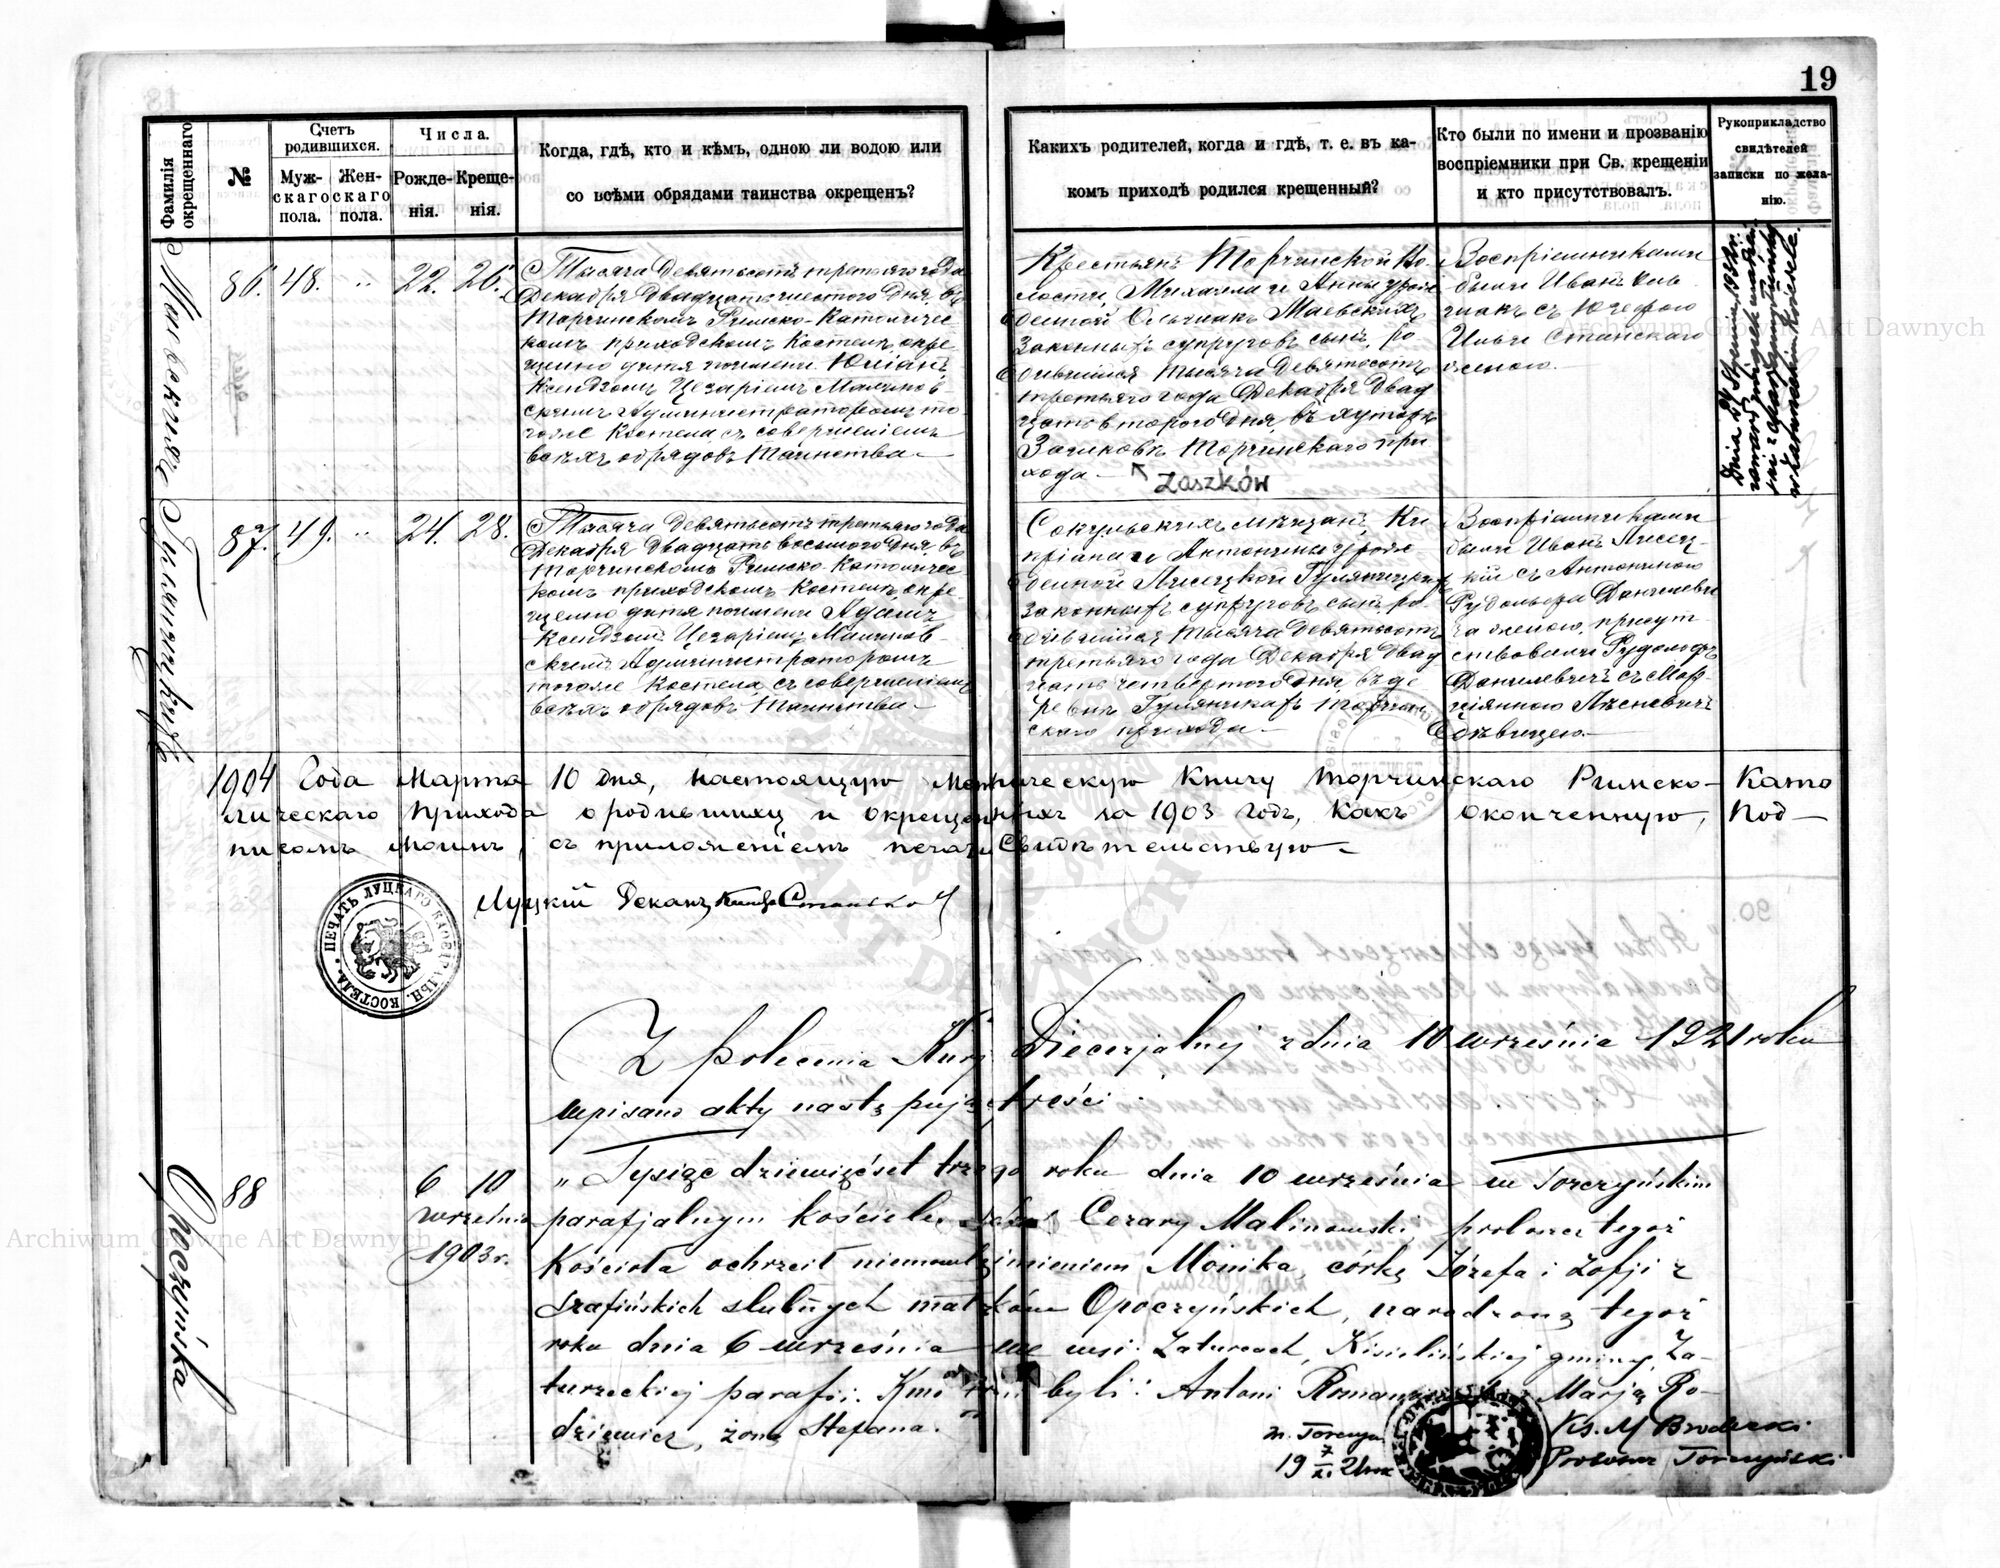 19
Фамилія окрещеннаго
№
Счетъ родившихся.
Муж-скаго пола.
Жен-скаго пола.
Числа.
Рожде-нія.
Креще-нія.
Когда, гдѣ, кто и кѣмъ, одною ли водою или
со всѣми обрядами таинства окрещенъ?
Какихъ родителей, когда и гдѣ, т. е. въ ка-
комъ приходѣ родился крещенный?
Кто были по имени и прозванію
воспріемники при Св. крещеніи
и кто присутствовалъ.
Рукоприкладство
свидѣтелей
записки по жела-
нію.
Маевскій
86. 48. " 22. 26.
Тысяча девятьсотъ третьяго года
Декабря двадцать шестого дня, въ
Торчинскомъ Римско-Католичес-
комъ приходскомъ костелѣ окре-
щено дитя по имени Юліанъ
Ксендзомъ Цезаріемъ Малинов-
скимъ Администраторомъ то-
гоже Костела съ совершеніемъ
всѣхъ обрядовъ Таинства.—
Крестьянъ Торчинской Во-
лости, Михаила и Анны урож-
денной Маевскихъ
законныхъ супруговъ сынъ, ро-
дившійся тысяча девятьсотъ
третьяго года Декабря двад
цать второго дня, въ
Торчинскаго при
хода.—
Zaszków
Воспріемниками
были Иванъ
съ Юзефою
женою.
Dnia 24 Stycznia 1932 r.
w Łuckiem kościele.
Гуляницкій
87. 49. " 24. 28.
Тысяча девятьсотъ третьяго года
Декабря двадцать восьмого дня, въ
Торчинскомъ Римско-Католичес
комъ приходскомъ Костелѣ, окре
щено дитя по имени Адамъ
Ксендзомъ Цезаріемъ Малинов-
скимъ Администраторомъ
тогоже Костела съ совершеніемъ
всѣхъ обрядовъ Таинства.—
Сокульскихъ мѣщанъ, Ки
пріана и Антонины урож-
денной Лисецкой Гуляницкихъ
законныхъ супруговъ сынъ, ро-
дившійся тысяча девятьсотъ
третьяго года Декабря двад
цать четвертого дня, въ де-
ревнѣ Гуляникахъ Торчин-
скаго прихода.—
Воспріемниками
были Иванъ Лисец-
кій съ Антониною
Рудольфа Данилеви
ча женою, присут
ствовали Рудольфъ
Данилевичъ съ Мар-
ціянною Лѣсневичъ
дѣвицею.—
1904 Года Марта 10 дня, настоящую Метрическую Книгу Торчинскаго Римско-Като
лическаго Прихода о родившихся и окрещенныхъ за 1903 годъ, какъ оконченную, Под—
писомъ моимъ, съ приложеніемъ печати свидѣтельствую.—
Луцкій Деканъ
ПЕЧАТЬ ЛУЦКАГО КАѲЕДРАЛЬН. КОСТЕЛА.
Z polecenia Kurji Diecezjalnej z dnia 10 września 1921 roku
wpisano akty następującej treści:
Opoczyńska
88
6 10
września
1903 r.
„Tysiąc dziewięćset trzego roku dnia 10 września w Torczyńskim
parafjalnym kościele, Cezary Malinowski, proboszcz tegoż
Kościoła ochrzcił niemowlę imieniem Monika, córkę Józefa i Zofji z
Szafińskich ślubnych małżonków Opoczyńskich, narodzoną tegoż
roku dnia 6 września we wsi: Zaturcach, Kisielińskiej gminy, Za-
tureckiej parafii. Kmotrami byli: Antoni Marją Ro-
dziewicz, żoną Stefana.
m. Torczyn
19 7/XI 21 rok
Ks. M Brodecki
Proboszcz Torczyński
Archiwum Główne Akt Dawnych
Archiwum Główne Akt Dawnych